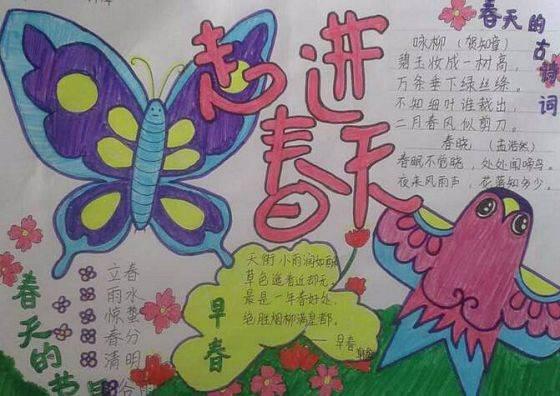 走进
春天
春天的古诗词
咏柳（贺知章）
碧玉妆成一树高，
万条垂下绿丝绦。
不知细叶谁裁出，
二月春风似剪刀。
春晓（孟浩然）
春眠不觉晓，处处闻啼鸟。
夜来风雨声，花落知多少。
早春
天街小雨润如酥
草色遥看近却无。
最是一年春好处
绝胜烟柳满皇都。
——早春
春天的节
立春
雨水
惊蛰
春分
清明
谷